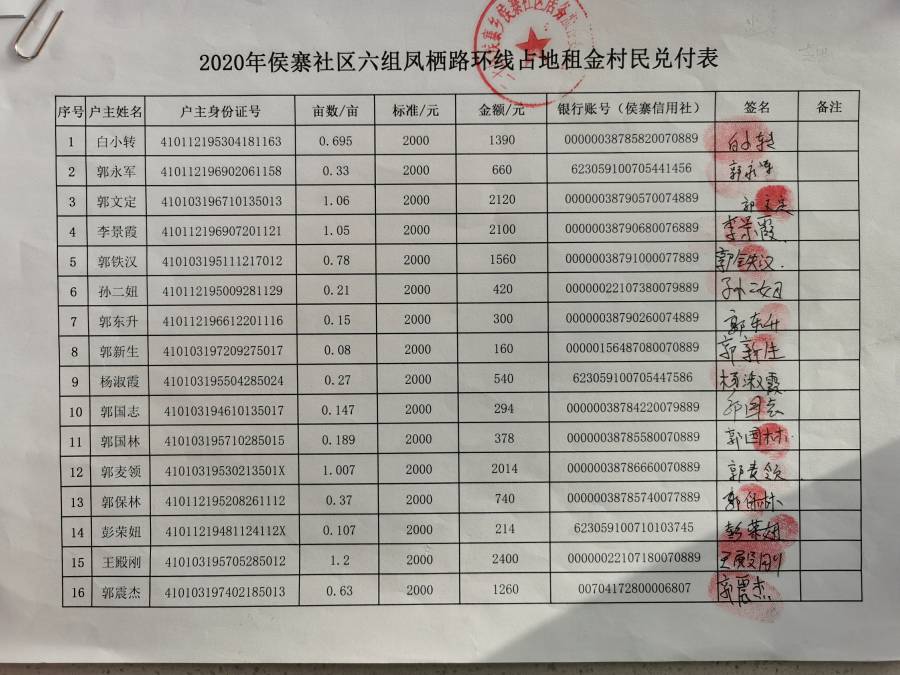 2020年侯寨社区六组凤栖路环线占地租金村民兑付表
序号 户主姓名 户主身份证号 亩数/亩 标准/元 金额/元 银行账号（侯寨信用社） 签名 备注
1 白小转 410112195304181163 0.695 2000 1390 00000038785820070889 白小转
2 郭永军 410112196902061158 0.33 2000 660 623059100705441456 郭永军
3 郭文定 410103196710135013 1.06 2000 2120 00000038790570074889 郭文定
4 李景霞 410112196907201121 1.05 2000 2100 00000038790680076889 李景霞
5 郭铁汉 410103195111217012 0.78 2000 1560 00000038791000077889 郭铁汉
6 孙二妞 410112195009281129 0.21 2000 420 00000022107380079889 孙二妞
7 郭东升 410112196612201116 0.15 2000 300 00000038790260074889 郭东升
8 郭新生 410103197209275017 0.08 2000 160 00000156487080070889 郭新生
9 杨淑霞 410103195504285024 0.27 2000 540 623059100705447586 杨淑霞
10 郭国志 410103194610135017 0.147 2000 294 00000038784220079889 郭国志
11 郭国林 410103195710285015 0.189 2000 378 00000038785580070889 郭国林
12 郭麦领 41010319530213501X 1.007 2000 2014 00000038786660070889 郭麦领
13 郭保林 410112195208261112 0.37 2000 740 00000038785740077889 郭保林
14 彭荣妞 41011219481124112X 0.107 2000 214 623059100710103745 彭荣妞
15 王殿刚 410103195705285012 1.2 2000 2400 00000022107180070889 王殿刚
16 郭震杰 410103197402185013 0.63 2000 1260 00704172800006807 郭震杰